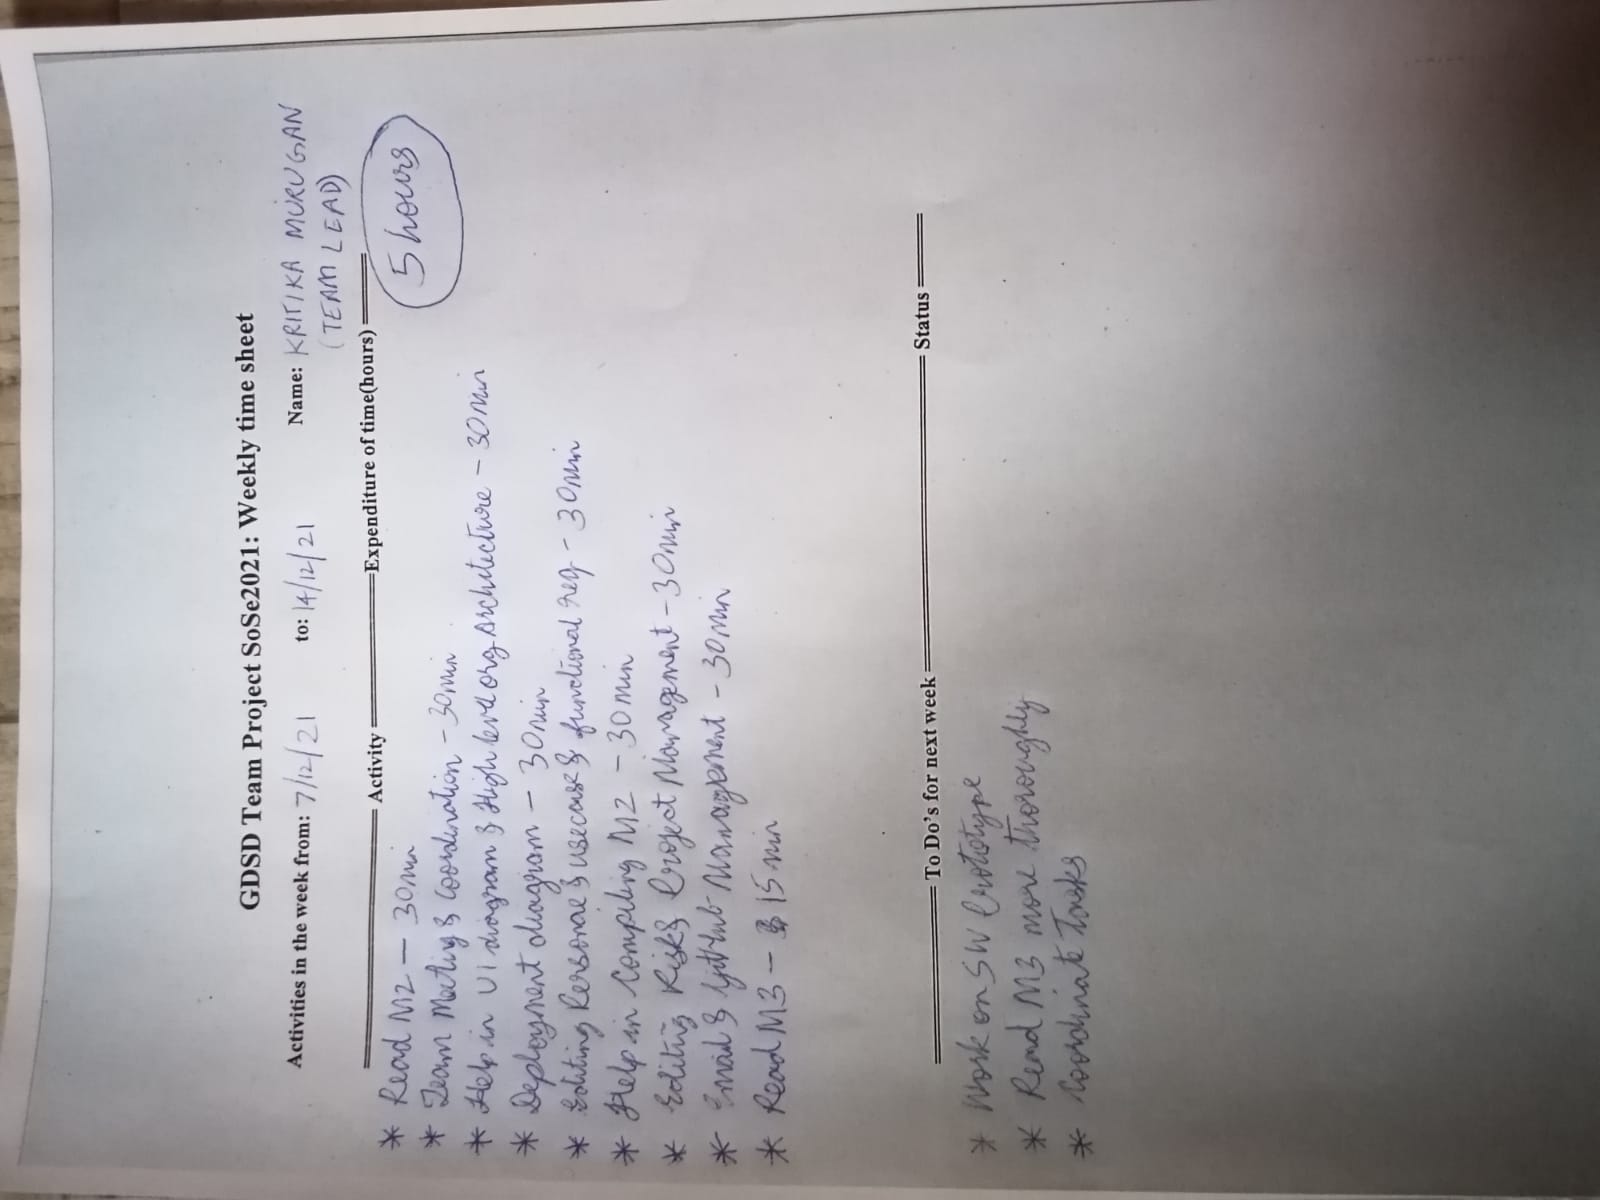 GDSD Team Project SoSe2021: Weekly time sheet
Activities in the week from: 7/12/21 to: 14/12/21 Name: KRITIKA MURUGAN
(TEAM LEAD)
Activity Expenditure of time(hours)
5 hours
* Read M2 – 30min
* Team Meeting & Coordination – 30min
* Help in UI diagram & High level org Architecture – 30min
* Deployment diagram – 30min
* Editing Personae & usecase & functional req – 30min
* Help in Compiling M2 – 30min
* Editing Risk & Project Management – 30min
* Email & GitHub Management – 30min
* Read M3 – 15 min
To Do's for next week Status
* Work on SW Prototype
* Read M3 more thoroughly
* Coordinate Tasks